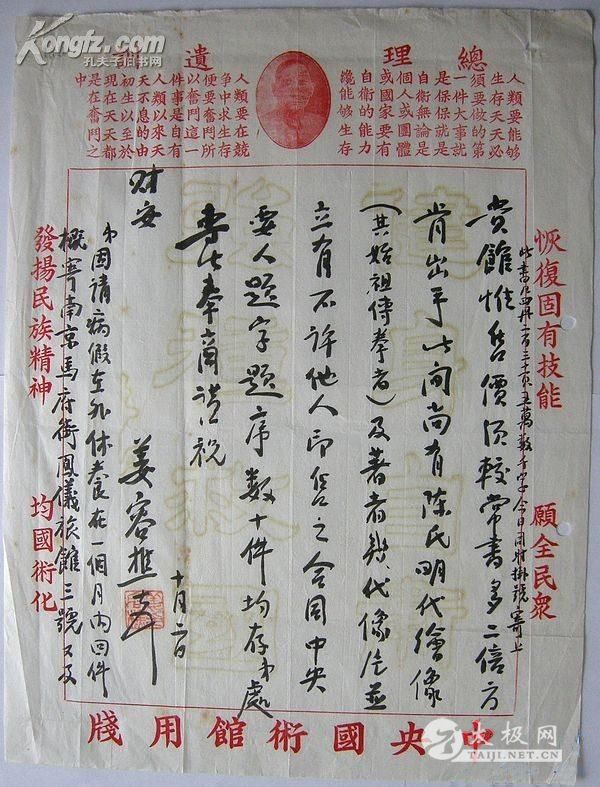 總理遺
人類要能夠
生存天天必
須要做的第
一件大事就
是保保就是
自衛無論是
個人或團體
或國家要有
自衛的能力
纔能够生存
人類要在競
爭中求生存
便要奮鬥所
以奮鬥這一
件事是自有
人類以來天
天不息的由
初生以至於
現在天天都
是在奮鬥之
中
恢復固有技能
願全民衆
此書四冊二百三十頁五萬數千字今日同時掛號寄上
貴館惟售價須較常書多二倍方
肯出手此間尚有陳氏明代繪像
(其始祖傳拳者)及著者數代像片並
立有不許他人印售之合同中央
要人題字題序數十件均存弟處
專此奉商謹祝
财安
姜容樵
十月二日
弟因請病假在外休養在一個月內回件
概寄南京馬府街鳳儀旅館三號又及
發揚民族精神
均國術化
中央國術館用牋
Kongfz.com
孔夫子旧书网
太极网
TAIJI.NET.CN